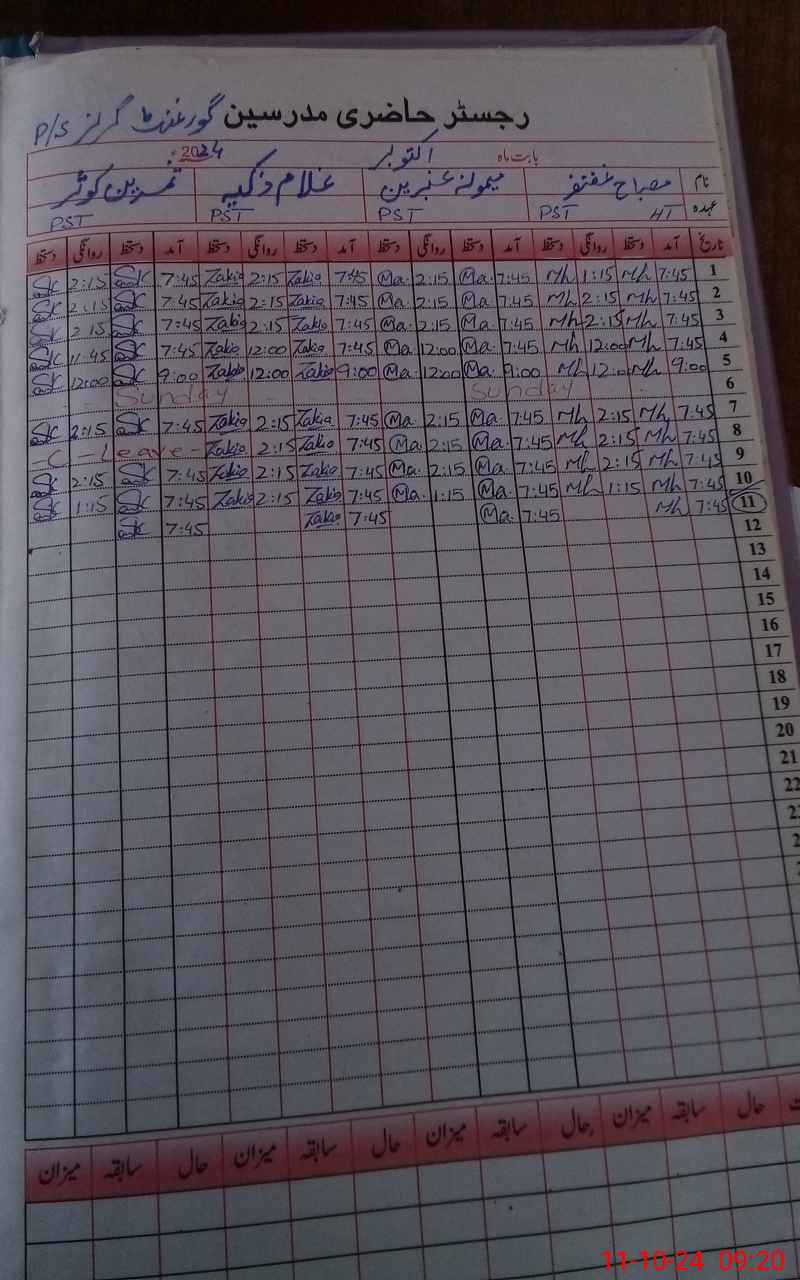 رجسٹر حاضری مدرسین گورنمنٹ گرلز P/S
بابت ماہ اکتوبر 2024ء
نام مصباح غضنفر میمونہ عنبرین غلام ذکیہ نسرین کوثر
عہدہ HT PST PST PST PST
تاریخ آمد دستخط روانگی دستخط آمد دستخط روانگی دستخط آمد دستخط روانگی دستخط آمد دستخط روانگی دستخط
1 7:45 Mh 1:15 Mh 7:45 Ma 2:15 Ma 7:45 Zakia 2:15 Zakia 7:45 SK 2:15 SK
2 7:45 Mh 2:15 Mh 7:45 Ma 2:15 Ma 7:45 Zakia 2:15 Zakia 7:45 SK 2:15 SK
3 7:45 Mh 2:15 Mh 7:45 Ma 2:15 Ma 7:45 Zakia 2:15 Zakia 7:45 SK 2:15 SK
4 7:45 Mh 12:00 Mh 7:45 Ma 12:00 Ma 7:45 Zakia 12:00 Zakia 7:45 SK 11:45 SK
5 9:00 Mh 12:00 Mh 9:00 Ma 12:00 Ma 9:00 Zakia 12:00 Zakia 9:00 SK 12:00 SK
6 Sunday Sunday
7 7:45 Mh 2:15 Mh 7:45 Ma 2:15 Ma 7:45 Zakia 2:15 Zakia 7:45 SK 2:15 SK
8 7:45 Mh 2:15 Mh 7:45 Ma 2:15 Ma 7:45 Zakia 2:15 Zakia -C-Leave-
9 7:45 Mh 2:15 Mh 7:45 Ma 2:15 Ma 7:45 Zakia 2:15 Zakia 7:45 SK 2:15 SK
10 7:45 Mh 1:15 Mh 7:45 Ma 1:15 Ma 7:45 Zakia 2:15 Zakia 7:45 SK 1:15 SK
11 7:45 Mh 7:45 Ma 7:45 Zakia 7:45 SK
12
13
14
15
16
17
18
19
20
21
22
حال سابقہ میزان حال سابقہ میزان حال سابقہ میزان حال سابقہ میزان
11-10-24 09:20